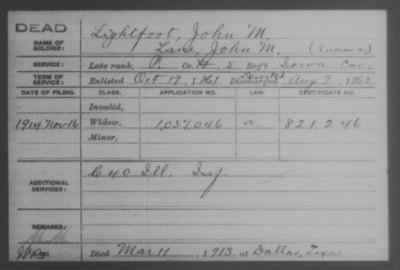 DEAD
Lightfoot, John M.
NAME OF SOLDIER:
Lane, John M.
SERVICE:
Late rank, P. Co. H, 5 Regt Iowa Cav.
TERM OF SERVICE:
Enlisted Oct 19, 1861 Discharged Aug 9, 1862
DATE OF FILING. CLASS. APPLICATION NO. LAW. CERTIFICATE NO.
Invalid,
1914 Nov 16 Widow, 1,037,046 a 821,246
Minor,
ADDITIONAL SERVICES:
C 40 Ill. Inf.
REMARKS:
Died Mar 11, 1913, at Dallas, Texas